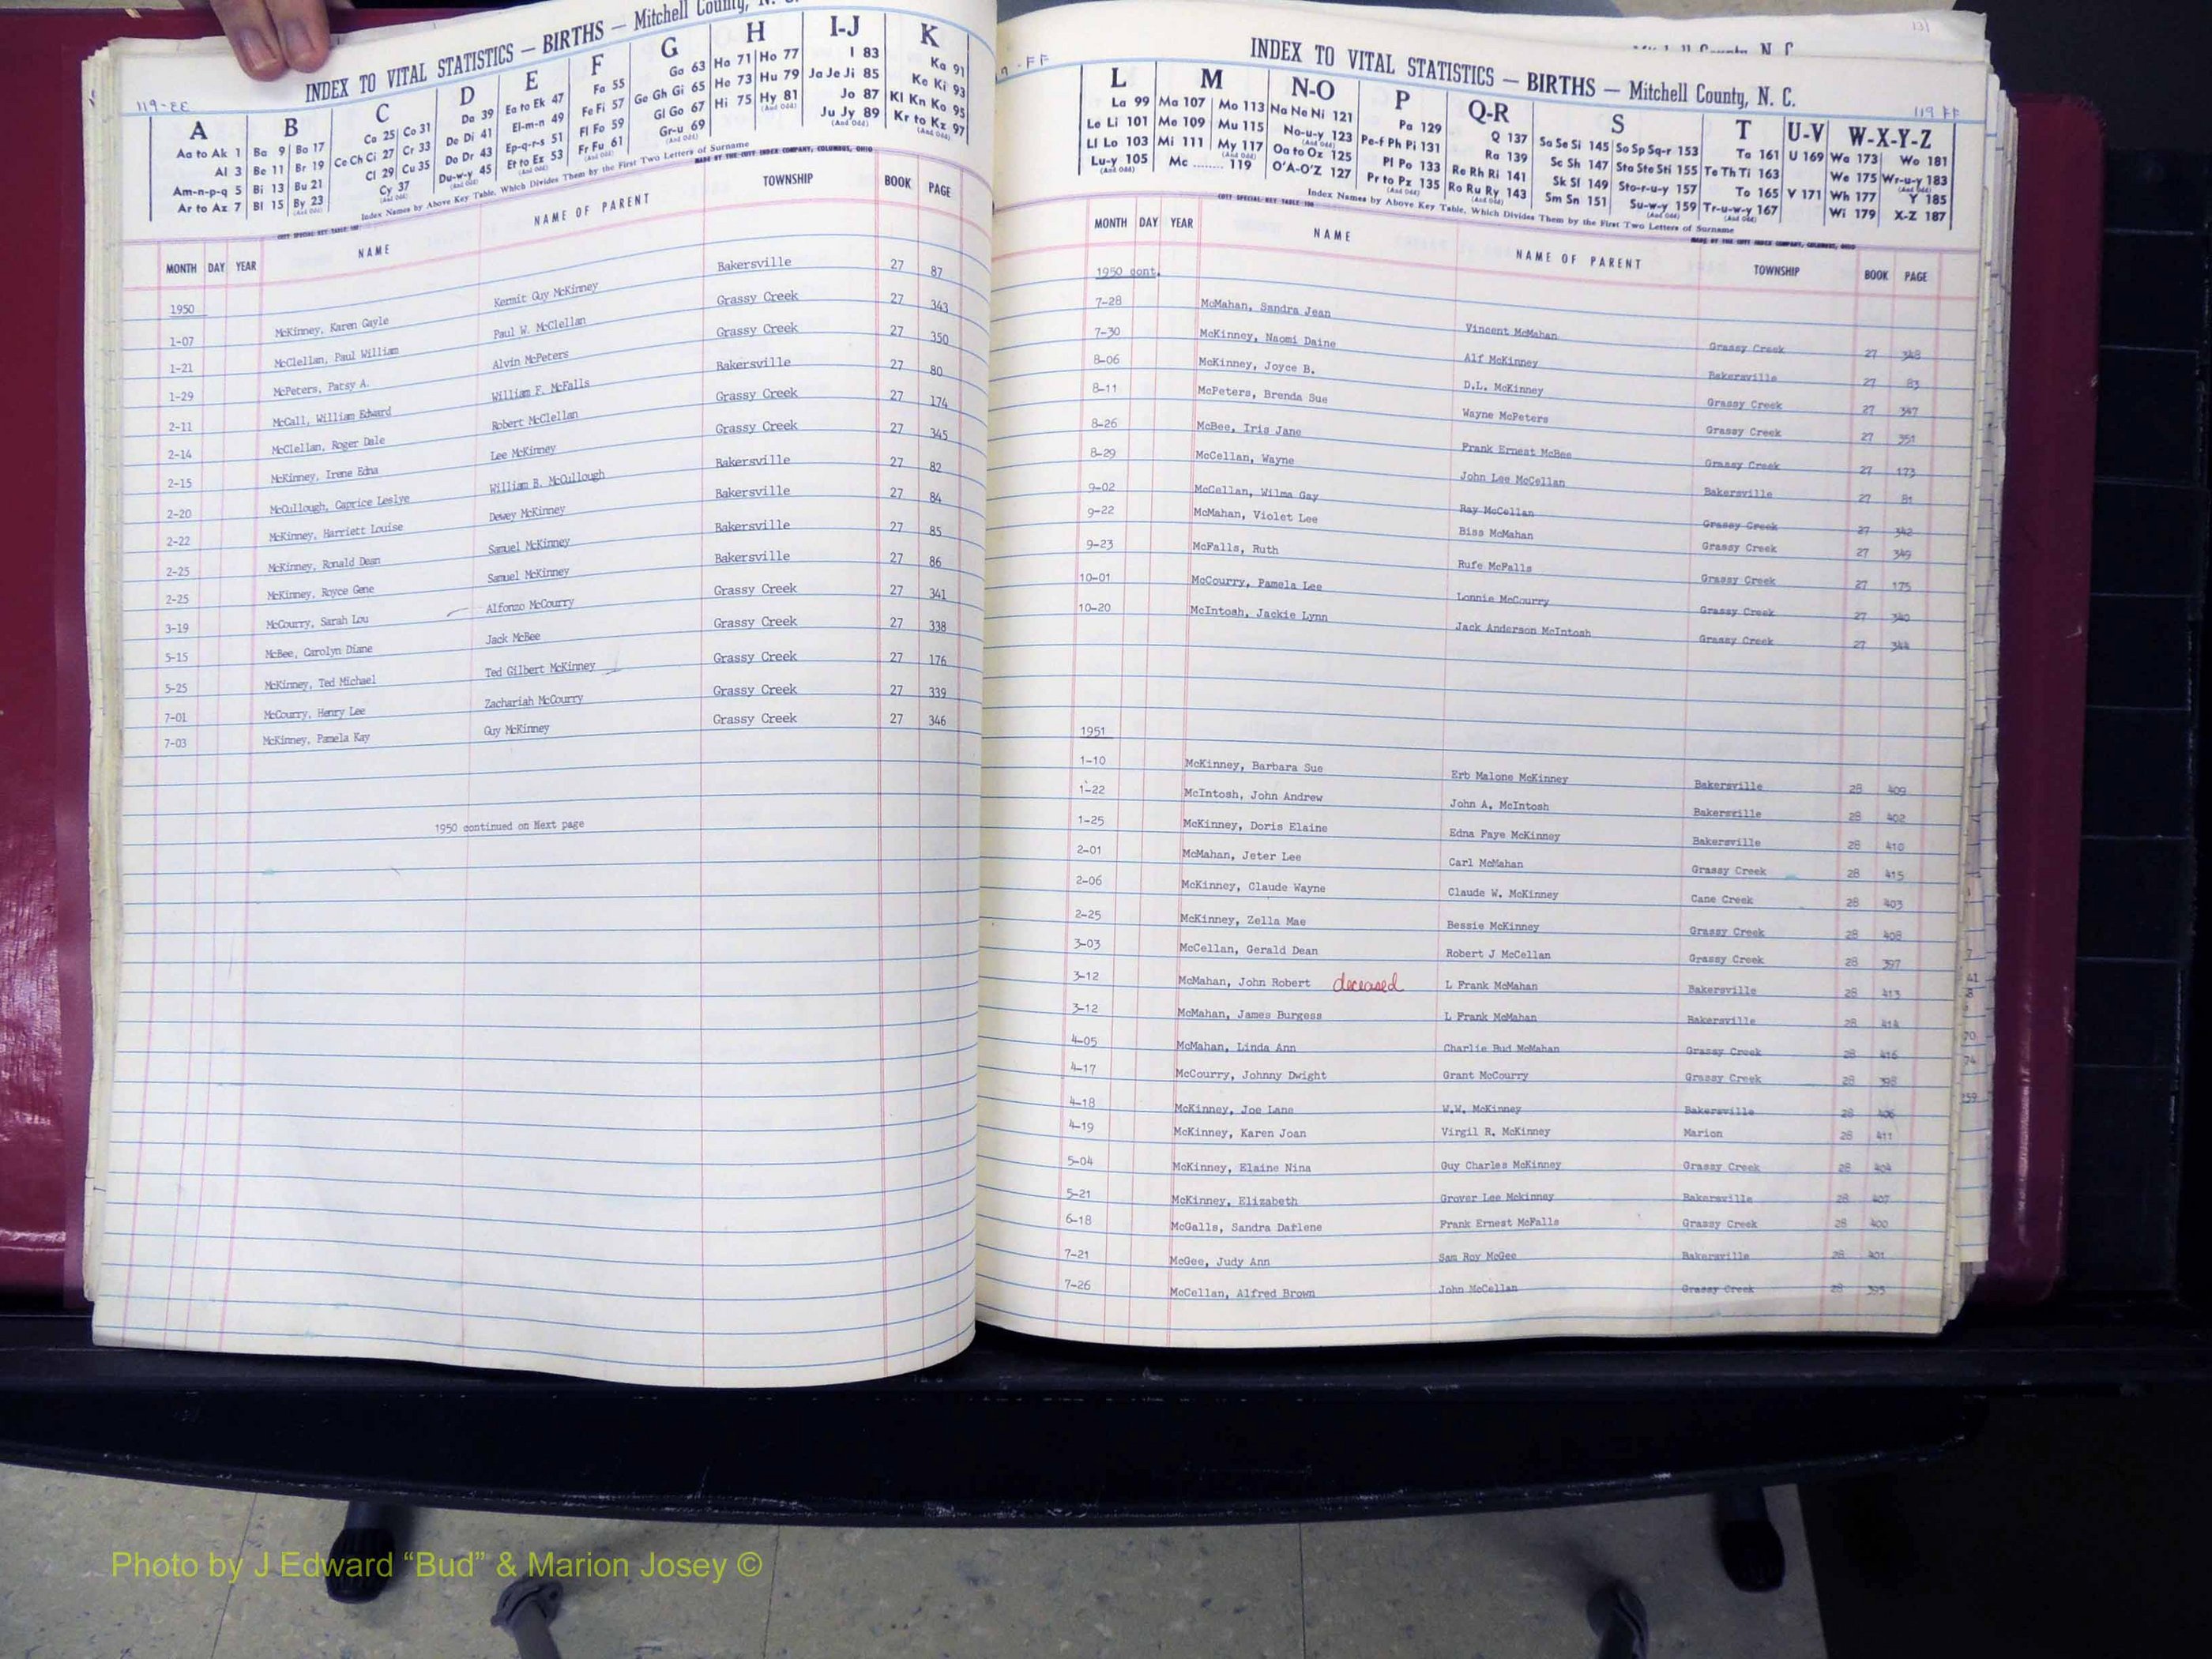 119-EE
INDEX TO VITAL STATISTICS — BIRTHS — Mitchell County, N. C.
A B C D E F G H I-J K
Aa to Ak 1 Ba 9 Bo 17 Ca 25 Co 31 Da 39 Ea to Ek 47 Fa 55 Ga 63 Ha 71 Ho 77 I 83 Ka 91
Al 3 Be 11 Br 19 Ce Ch Ci 27 Cr 33 De Di 41 El-m-n 49 Fe Fi 57 Ge Gh Gi 65 He 73 Hu 79 Ja Je Ji 85 Ke Ki 93
Am-n-p-q 5 Bi 13 Bu 21 Cl 29 Cu 35 Do Dr 43 Ep-q-r-s 51 Fl Fo 59 Gl Go 67 Hi 75 Hy 81 Jo 87 Kl Kn Ko 95
Ar to Az 7 Bl 15 By 23 Cy 37 Du-w-y 45 Et to Ez 53 Fr Fu 61 Gr-u 69 Ju Jy 89 Kr to Kz 97
Index Names by Above Key Table, Which Divides Them by the First Two Letters of Surname
MADE BY THE COTT INDEX COMPANY, COLUMBUS, OHIO
MONTH DAY YEAR NAME NAME OF PARENT TOWNSHIP BOOK PAGE
1950
1-07 McKinney, Karen Gayle Kermit Guy McKinney Bakersville 27 87
1-21 McClellan, Paul William Paul W. McClellan Grassy Creek 27 343
1-29 McPeters, Patsy A. Alvin McPeters Grassy Creek 27 350
2-11 McCall, William Edward William F. McFalls Bakersville 27 80
2-14 McClellan, Roger Dale Robert McClellan Grassy Creek 27 174
2-15 McKinney, Irene Edna Lee McKinney Grassy Creek 27 345
2-20 McCullough, Caprice Leslye William B. McCullough Bakersville 27 82
2-22 McKinney, Harriett Louise Dewey McKinney Bakersville 27 84
2-25 McKinney, Ronald Dean Samuel McKinney Bakersville 27 85
2-25 McKinney, Royce Gene Samuel McKinney Bakersville 27 86
3-19 McCourry, Sarah Lou Alfonzo McCourry Grassy Creek 27 341
5-15 McBee, Carolyn Diane Jack McBee Grassy Creek 27 338
5-25 McKinney, Ted Michael Ted Gilbert McKinney Grassy Creek 27 176
7-01 McCourry, Henry Lee Zachariah McCourry Grassy Creek 27 339
7-03 McKinney, Pamela Kay Guy McKinney Grassy Creek 27 346
1950 continued on Next page
INDEX TO VITAL STATISTICS — BIRTHS — Mitchell County, N. C.
119 FF
L M N-O P Q-R S T U-V W-X-Y-Z
La 99 Ma 107 Mo 113 Na Ne Ni 121 Pa 129 Q 137 Sa Se Si 145 So Sp Sq-r 153 Ta 161 U 169 Wa 173 Wo 181
Le Li 101 Me 109 Mu 115 No-u-y 123 Pe-f Ph Pi 131 Ra 139 Sc Sh 147 Sta Ste Sti 155 Te Th Ti 163 We 175 Wr-u-y 183
Ll Lo 103 Mi 111 My 117 Oa to Oz 125 Pl Po 133 Re Rh Ri 141 Sk Sl 149 Sto-r-u-y 157 To 165 V 171 Wh 177 Y 185
Lu-y 105 Mc ........ 119 O'A-O'Z 127 Pr to Pz 135 Ro Ru Ry 143 Sm Sn 151 Su-w-y 159 Tr-u-w-y 167 Wi 179 X-Z 187
Index Names by Above Key Table, Which Divides Them by the First Two Letters of Surname
MONTH DAY YEAR NAME NAME OF PARENT TOWNSHIP BOOK PAGE
1950 cont.
7-28 McMahan, Sandra Jean Vincent McMahan Grassy Creek 27 348
7-30 McKinney, Naomi Daine Alf McKinney Bakersville 27 83
8-06 McKinney, Joyce B. D.L. McKinney Grassy Creek 27 347
8-11 McPeters, Brenda Sue Wayne McPeters Grassy Creek 27 351
8-26 McBee, Iris Jane Frank Ernest McBee Grassy Creek 27 173
8-29 McCellan, Wayne John Lee McCellan Bakersville 27 81
9-02 McCellan, Wilma Gay Ray McCellan Grassy Creek 27 342
9-22 McMahan, Violet Lee Biss McMahan Grassy Creek 27 349
9-23 McFalls, Ruth Rufe McFalls Grassy Creek 27 175
10-01 McCourry, Pamela Lee Lonnie McCourry Grassy Creek 27 340
10-20 McIntosh, Jackie Lynn Jack Anderson McIntosh Grassy Creek 27 344
1951
1-10 McKinney, Barbara Sue Erb Malone McKinney Bakersville 28 409
1-22 McIntosh, John Andrew John A. McIntosh Bakersville 28 402
1-25 McKinney, Doris Elaine Edna Faye McKinney Bakersville 28 410
2-01 McMahan, Jeter Lee Carl McMahan Grassy Creek 28 415
2-06 McKinney, Claude Wayne Claude W. McKinney Cane Creek 28 403
2-25 McKinney, Zella Mae Bessie McKinney Grassy Creek 28 408
3-03 McCellan, Gerald Dean Robert J McCellan Grassy Creek 28 397
3-12 McMahan, John Robert deceased L Frank McMahan Bakersville 28 413
3-12 McMahan, James Burgess L Frank McMahan Bakersville 28 414
4-05 McMahan, Linda Ann Charlie Bud McMahan Grassy Creek 28 416
4-17 McCourry, Johnny Dwight Grant McCourry Grassy Creek 28 398
4-18 McKinney, Joe Lane W.W. McKinney Bakersville 28 406
4-19 McKinney, Karen Joan Virgil R. McKinney Marion 28 411
5-04 McKinney, Elaine Nina Guy Charles McKinney Grassy Creek 28 404
5-21 McKinney, Elizabeth Grover Lee Mckinney Bakersville 28 407
6-18 McGalls, Sandra Darlene Frank Ernest McFalls Grassy Creek 28 400
7-21 McGee, Judy Ann Sam Roy McGee Bakersville 28 401
7-26 McCellan, Alfred Brown John McCellan Grassy Creek 28 395
Photo by J Edward “Bud” & Marion Josey ©